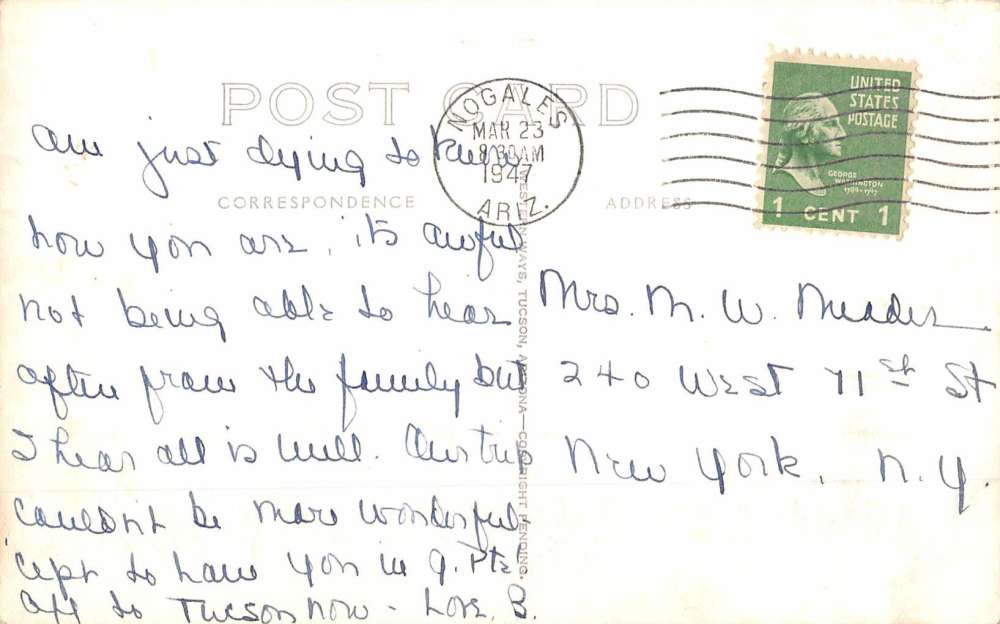 POST CARD
NOGALES
MAR 23
8 30 AM
1947
ARIZ.
UNITED
STATES
POSTAGE
GEORGE
WASHINGTON
1789-1797
1 CENT 1
CORRESPONDENCE
ADDRESS
am just dying to know
how you are, it's awful
not being able to hear
often from the family but
I hear all is well. Our trip
couldn't be more wonderful
'cept to have you in
Off to Tucson now - Love, B.
WESTERN WAYS, TUCSON, ARIZONA—COPYRIGHT PENDING.
Mrs. M. W.
240 West 71st St
New York, N.Y.